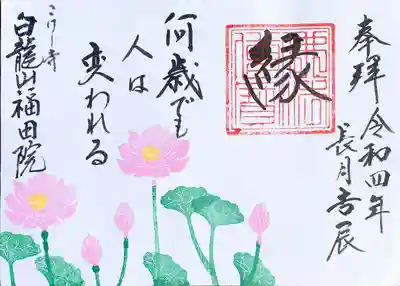 奉拝 令和四年
長月吉辰
縁
何歳でも
人は
変われる
こけし寺
白龍山福田院